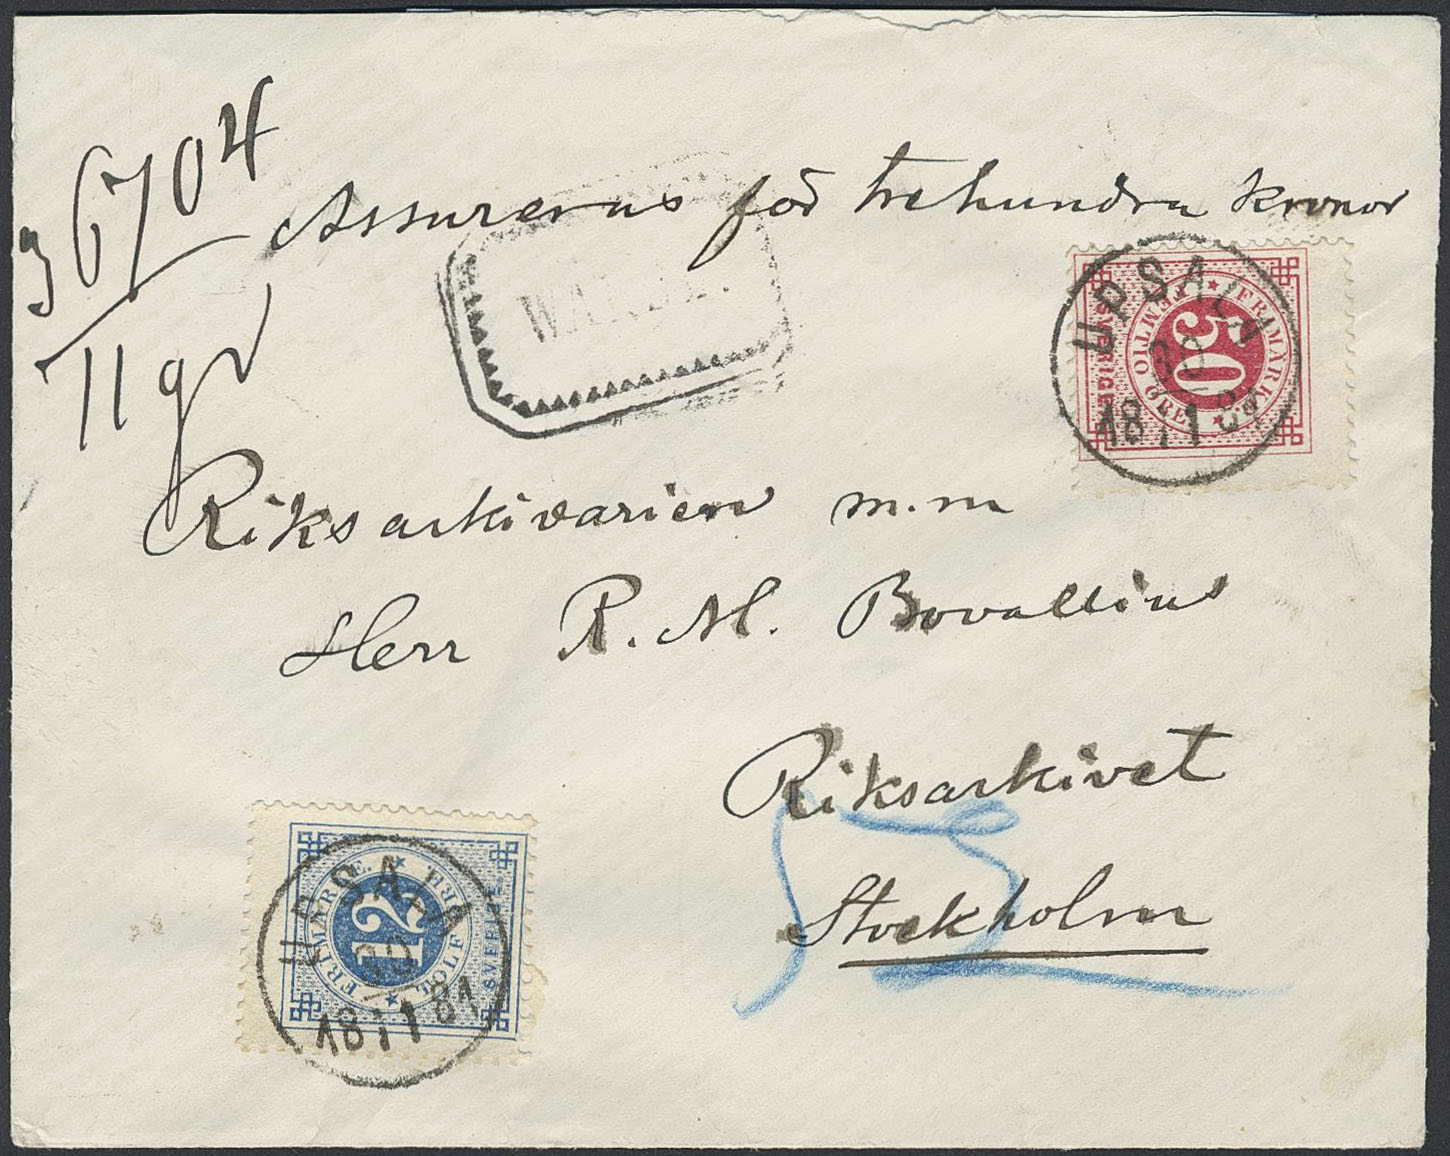 36704
11 gr
Assureras för trehundra kronor
UPSALA
30
18 11 81
SVERIGE
FRIMÄRKE
FEMTIO ÖRE
50
Riksarkivarien m.m
Herr R. M. Bovallius
Riksarkivet
Stockholm
UPSALA
30
18 11 81
FRIMÄRKE
TOLF ÖRE
12
SVERIGE